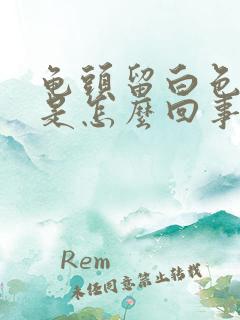 龟頭留白色
是怎麼回事
Rem
未任同意禁止转载